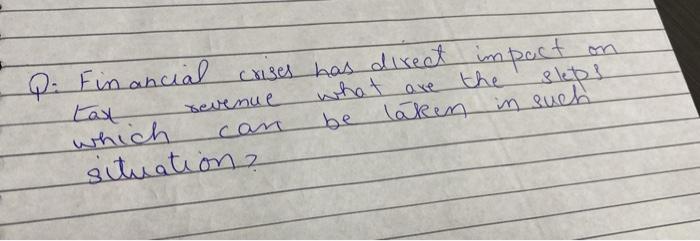 Q: Financial crises has direct impact on
tax revenue what are the steps
which can be taken in such
situation?